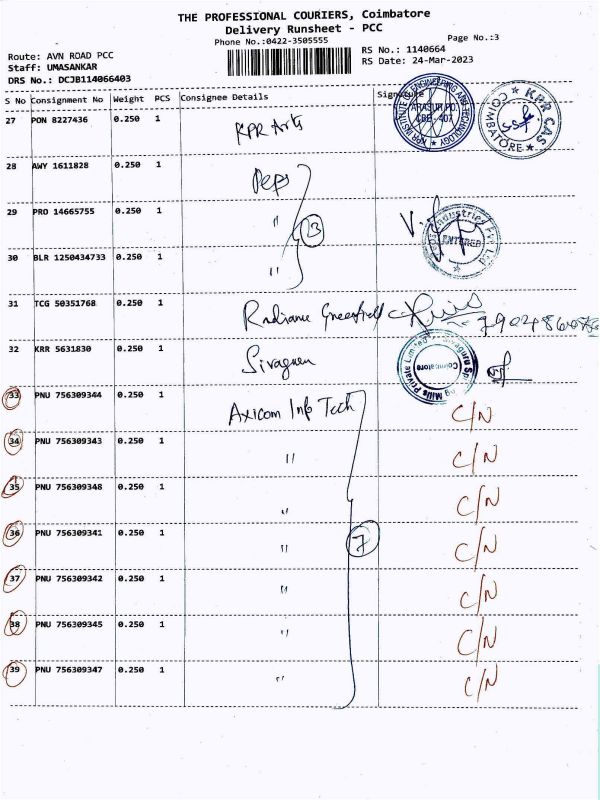 THE PROFESSIONAL COURIERS, Coimbatore
Delivery Runsheet - PCC
Phone No.:0422-3505555
Page No.:3
Route: AVN ROAD PCC
Staff: UMASANKAR
DRS No.: DCJB114066403
RS No.: 1140664
RS Date: 24-Mar-2023
S No Consignment No Weight PCS Consignee Details Signature
27 PON 8227436 0.250 1 KPR Arts
KPR INSTITUTE OF ENGINEERING AND TECHNOLOGY
ARASUR PO,
CBE - 407
KPR CAS
COIMBATORE
28 AWY 1611828 0.250 1 Peps
29 PRO 14665755 0.250 1 "
3
Industries Pvt Ltd
ENTERED
30 BLR 1250434733 0.250 1 "
31 TCG 50351768 0.250 1 Radiance Greenfield
32 KRR 5631830 0.250 1 Sivaguru
Sivaguru Spg Mills Private Limited
Coimbatore
33 PNU 756309344 0.250 1 Axicom Info Tech C/N
34 PNU 756309343 0.250 1 " C/N
35 PNU 756309348 0.250 1 " C/N
36 PNU 756309341 0.250 1 " C/N
7
37 PNU 756309342 0.250 1 " C/N
38 PNU 756309345 0.250 1 " C/N
39 PNU 756309347 0.250 1 " C/N